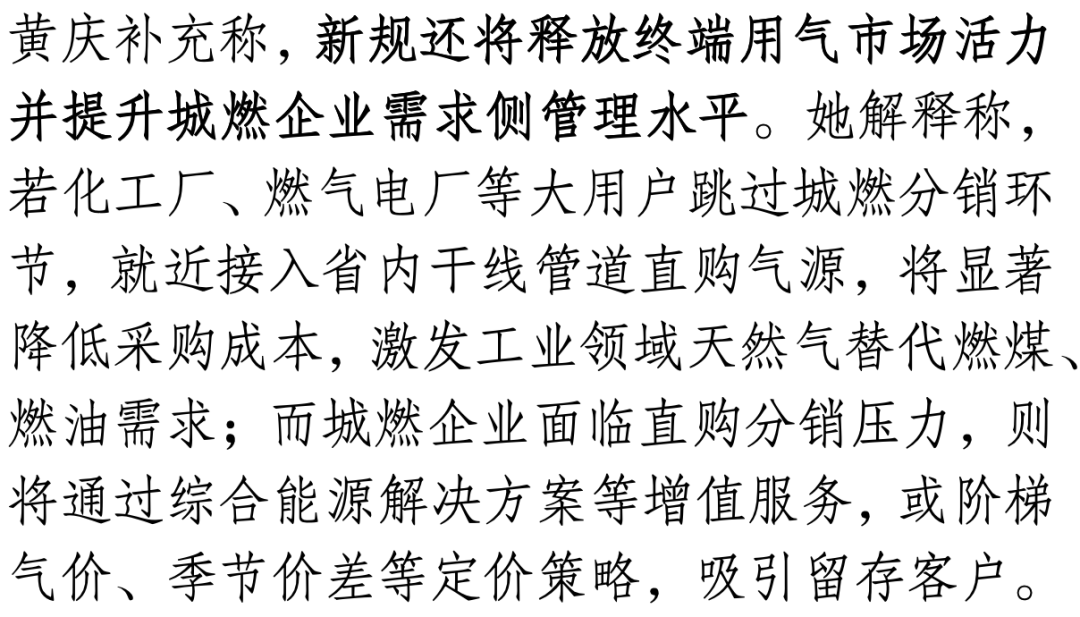 黄庆补充称，新规还将释放终端用气市场活力
并提升城燃企业需求侧管理水平。她解释称，
若化工厂、燃气电厂等大用户跳过城燃分销环
节，就近接入省内干线管道直购气源，将显著
降低采购成本，激发工业领域天然气替代燃煤、
燃油需求；而城燃企业面临直购分销压力，则
将通过综合能源解决方案等增值服务，或阶梯
气价、季节价差等定价策略，吸引留存客户。